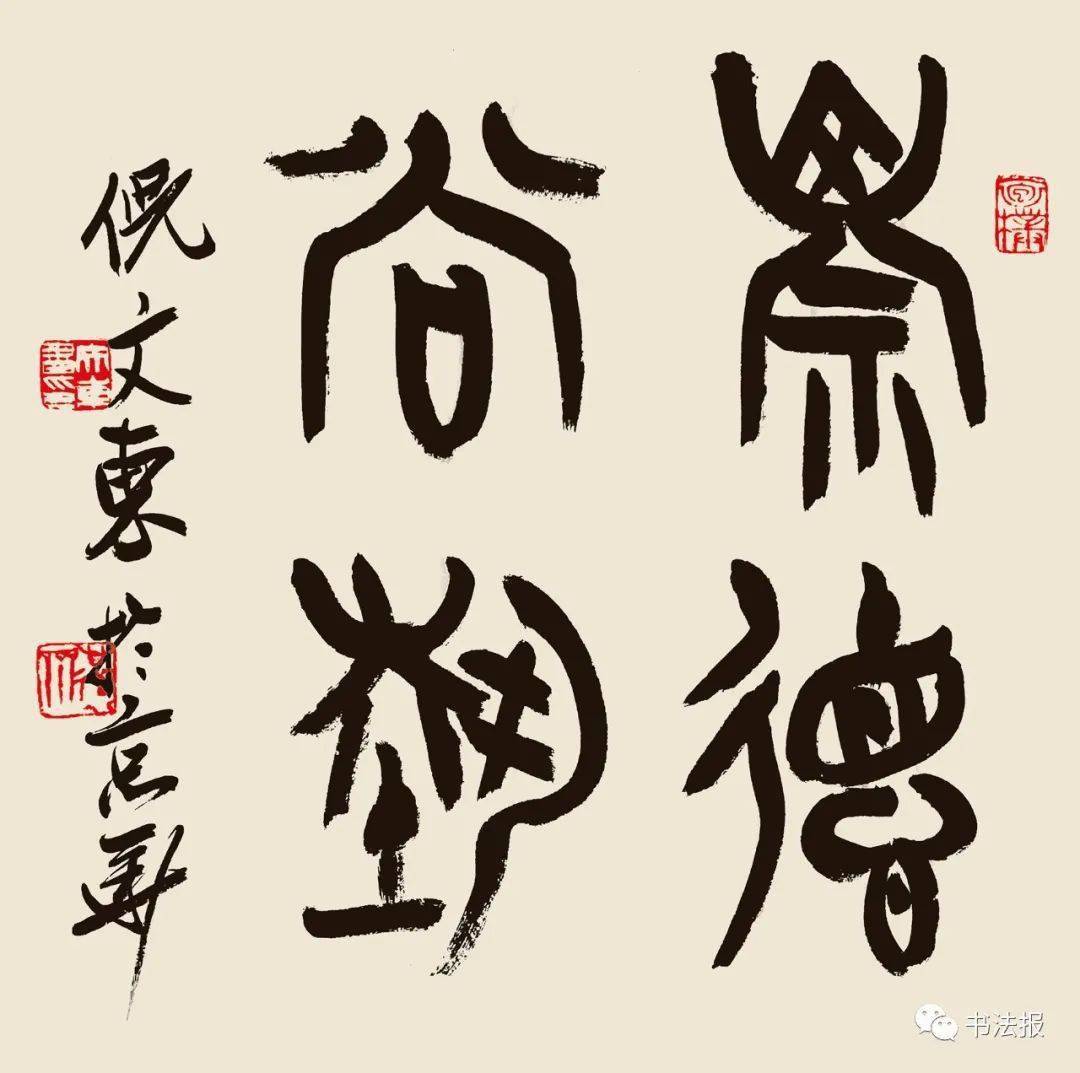 崇德
尚藝
倪文東於京華
书法报